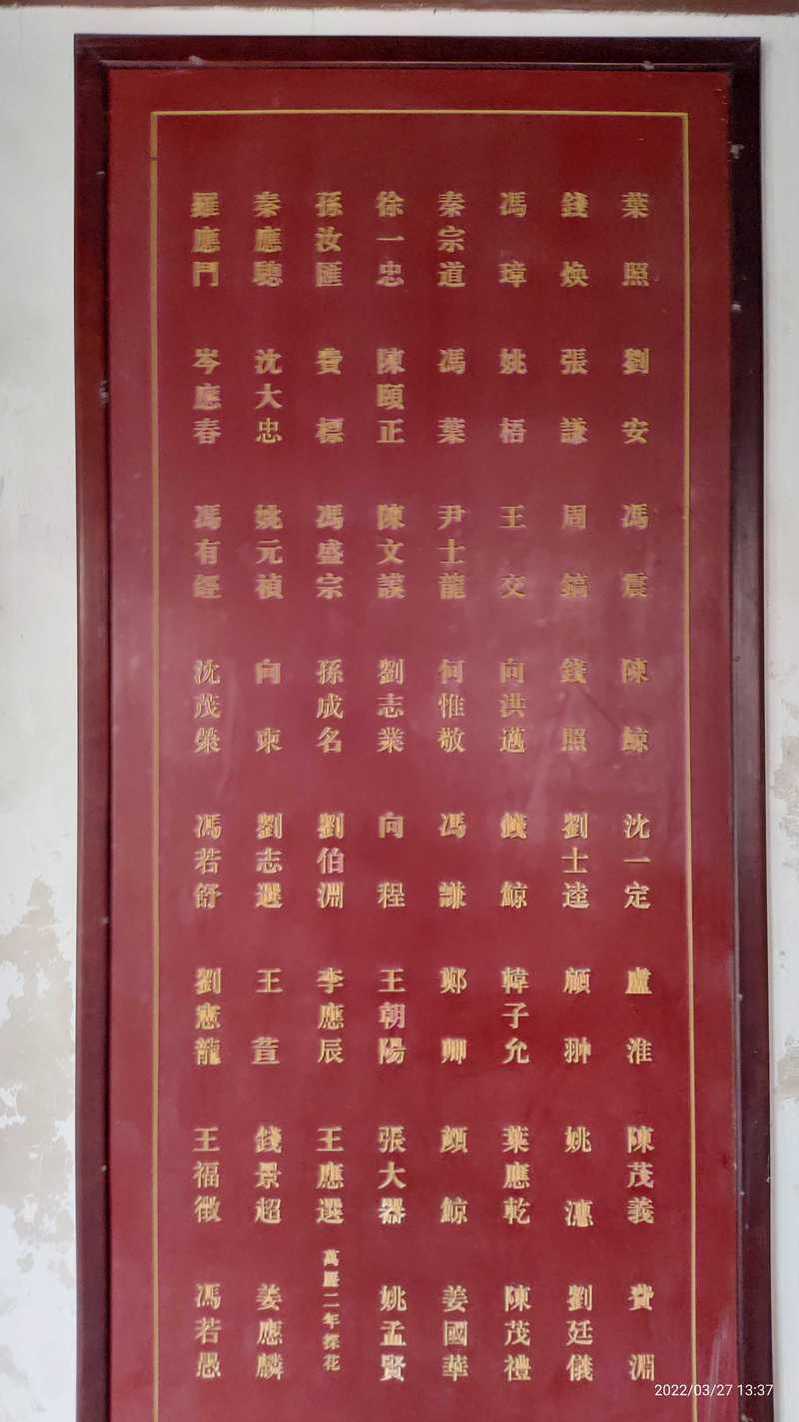 葉照 劉安 馮震 陳鯨 沈一定 盧淮 陳茂義 費淵
錢焕 張謙 周鎬 錢照 劉士逵 顧翀 姚漶 劉廷儀
馮璋 姚梧 王交 向洪邁 錢鯨 韓子允 葉應乾 陳茂禮
秦宗道 馮葉 尹士龍 何惟敬 馮謙 鄭卿 顏鯨 姜國華
徐一忠 陳頤正 陳文謨 劉志業 向程 王朝陽 張大器 姚孟賢
孫汝匯 費標 馮盛宗 孫成名 劉伯淵 李應辰 王應選 萬曆二年探花
秦應驄 沈大忠 姚元禎 向東 劉志選 王萱 錢景超 姜應麟
羅應門 岑應春 馮有經 沈茂榮 馮若舒 劉憲龍 王福徵 馮若愚
2022/03/27 13:37